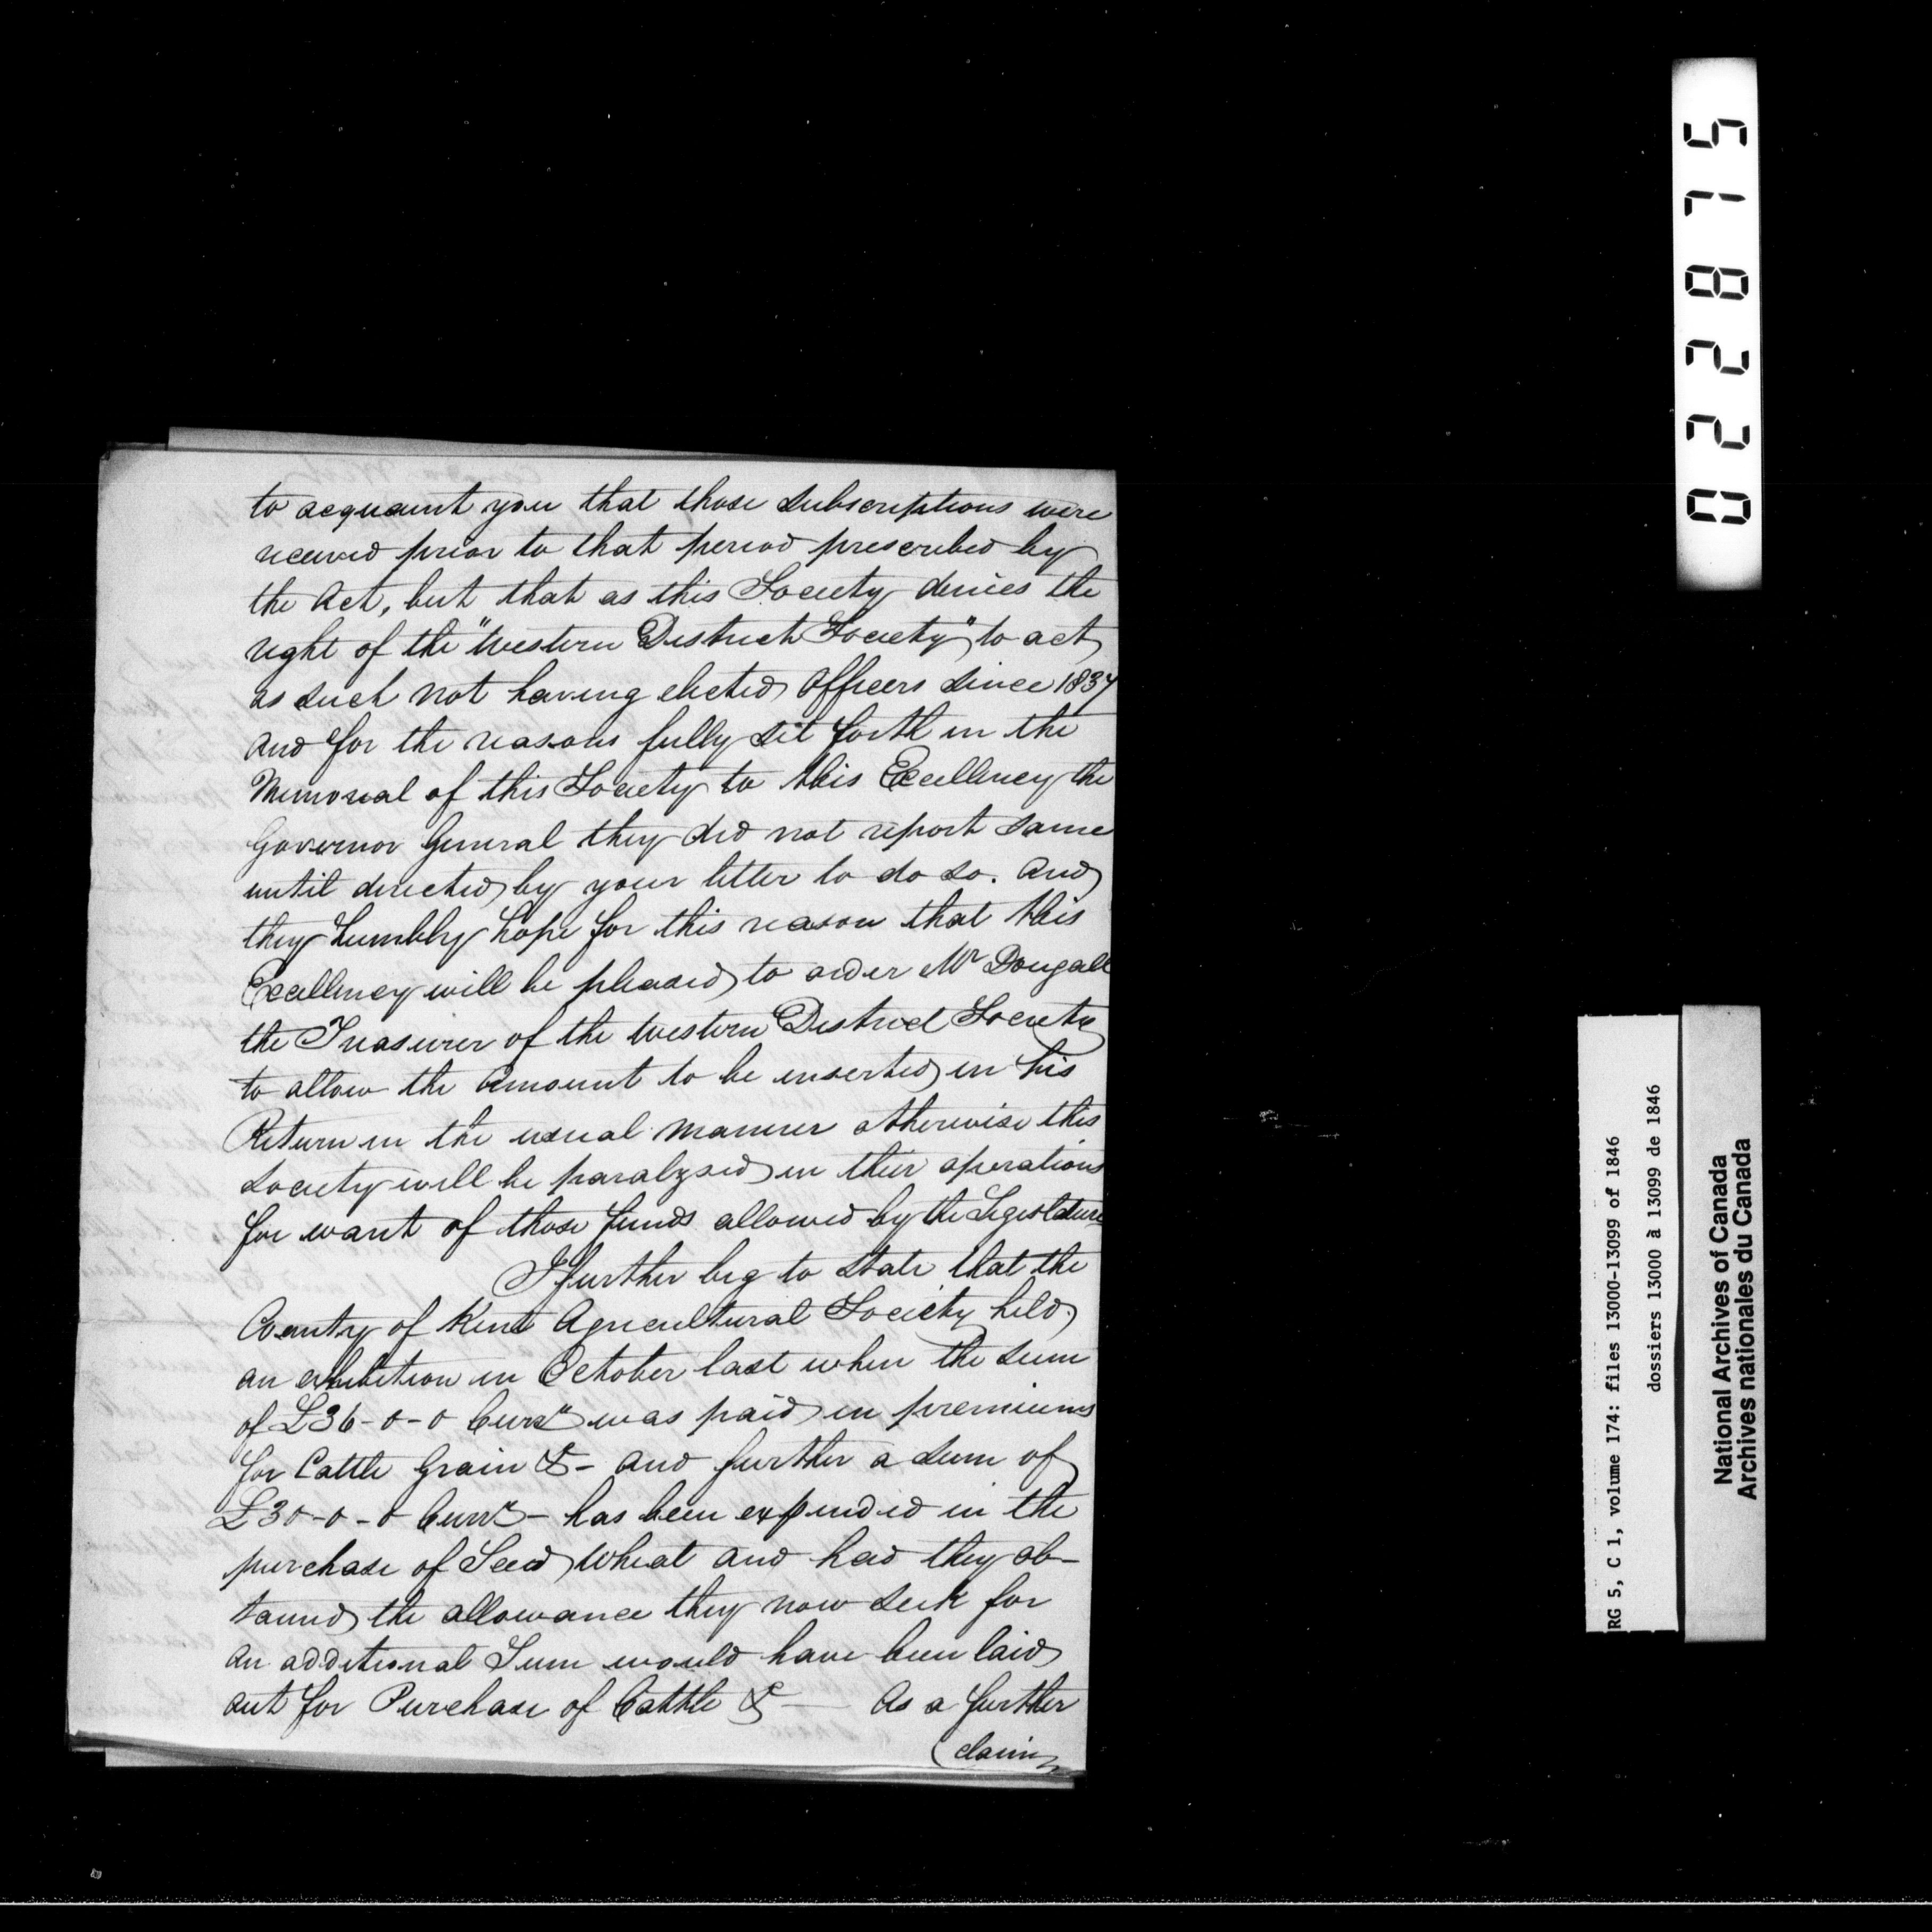 to acquaint you that those subscriptions were
received prior to that period prescribed by
the Act, but that as this Society denies the
right of the "Western District Society" to act
as such not having elected Officers since 1837
and for the reasons fully set forth in the
Memorial of this Society to His Excellency the
Governor General they did not report same
until directed by your letter to do so. And
they humbly hope for this reason that His
Excellency will be pleased to order Mr Dougall
the Treasurer of the Western District Society
to allow the Amount to be inserted in his
Return in the usual manner otherwise this
Society will be paralyzed in their operations
for want of those funds allowed by the Legislature
I further beg to state that the
County of Kent Agricultural Society held
an exhibition in October last when the sum
of £36-0-0 Curry was paid in premiums
for Cattle Grain & - and further a sum of
£30-0-0 Curry - has been expended in the
purchase of Seed Wheat and had they ob-
tained the allowance they now seek for
an additional Sum would have been laid
out for Purchase of Cattle & — As a further
claim
022875
RG 5, C 1, volume 174: files 13000-13099 of 1846
dossiers 13000 à 13099 de 1846
National Archives of Canada
Archives nationales du Canada